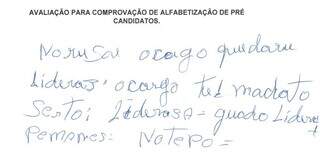 AVALIAÇÃO PARA COMPROVAÇÃO DE ALFABETIZAÇÃO DE PRÉ
CANDIDATOS.
Norusar ocargo quidaru
Lideras, ocargo tei madato
Serto; Liderasa = quado Lidera
Pemomes: Notepo =